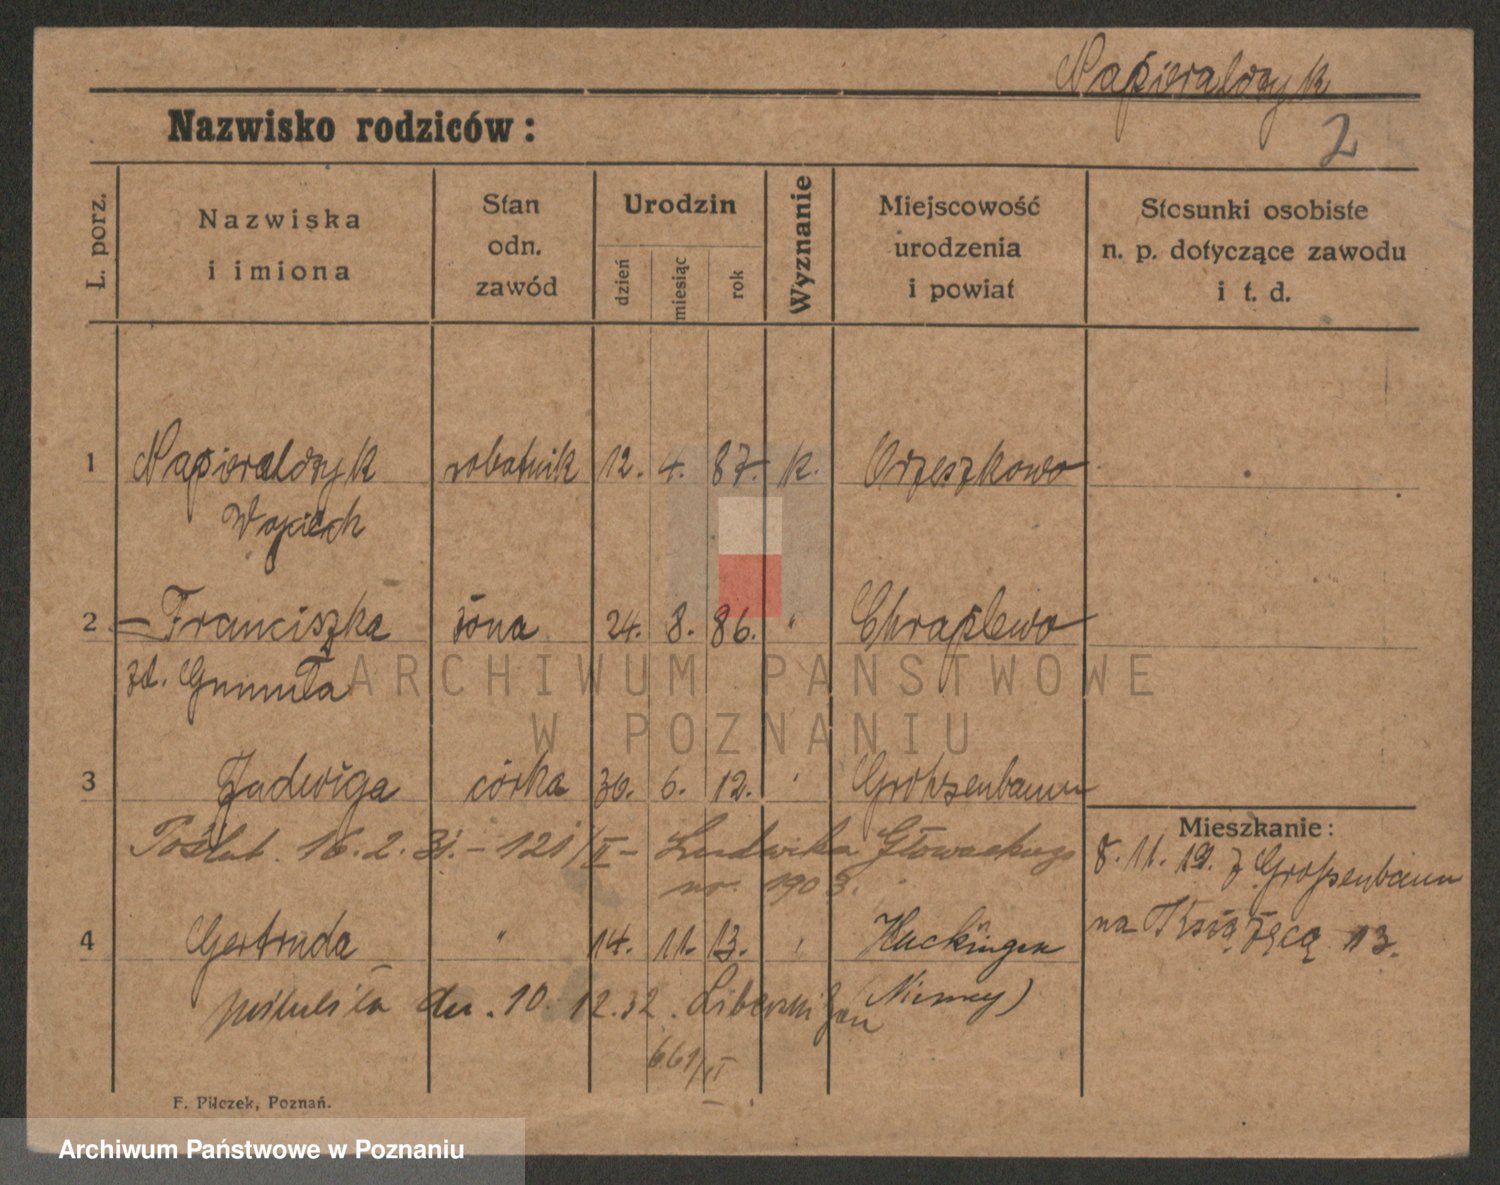 Napieralczyk
Nazwisko rodziców:
2
L. porz.
Nazwiska i imiona
Stan odn. zawód
Urodzin
dzień
miesiąc
rok
Wyznanie
Miejscowość urodzenia i powiat
Stosunki osobiste n. p. dotyczące zawodu i t. d.
1 Napieralczyk robotnik 12. 4. 87. k. Orzeszkowo
Wojciech
2 — Franciszka żona 24. 8. 86. " Chraplewo
zd.
ARCHIWUM PAŃSTWOWE
W POZNANIU
3 Jadwiga córka 30. 6. 12. " Großenbaum
Poślub. 16. 2. 31. – 121/II – Ludwika Głowackiego
nr. 1903.
Mieszkanie:
8. 11. 19. z Großenbaum
na Książęcą 13.
4 Gertruda " 14. 11. 13. " Huckingen
poślubiła dn. 10. 12. 32. Jan (Niemcy)
661/II
F. Pilczek, Poznań.
Archiwum Państwowe w Poznaniu